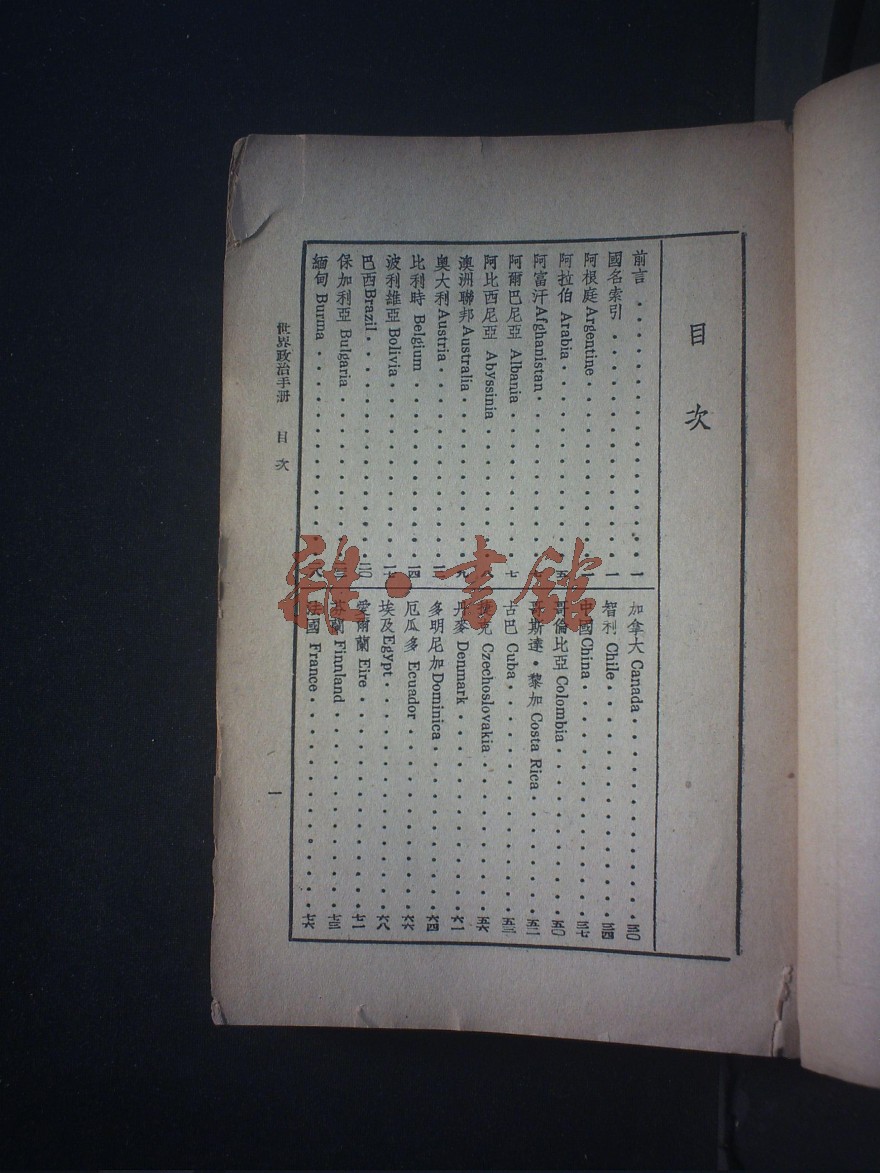 目次
前言 一
國名索引 一
阿根庭 Argentine 一
阿拉伯 Arabia 五
阿富汗 Afghanistan 七
阿爾巴尼亞 Albania 七
阿比西尼亞 Abyssinia 八
澳洲聯邦 Australia 九
奧大利 Austria
比利時 Belgium 一四
波利維亞 Bolivia 一七
巴西 Brazil 二〇
保加利亞 Bulgaria
緬甸 Burma
加拿大 Canada 三〇
智利 Chile 三四
中國 China 三七
哥倫比亞 Colombia 五〇
哥斯達・黎加 Costa Rica 五二
古巴 Cuba 五三
捷克 Czechoslovakia 五六
丹麥 Denmark 六一
多明尼加 Dominica 六四
厄瓜多 Ecuador 六六
埃及 Egypt 六八
愛爾蘭 Eire 七一
芬蘭 Finnland 七三
法國 France 七六
世界政治手册 目次
一
雜・書館